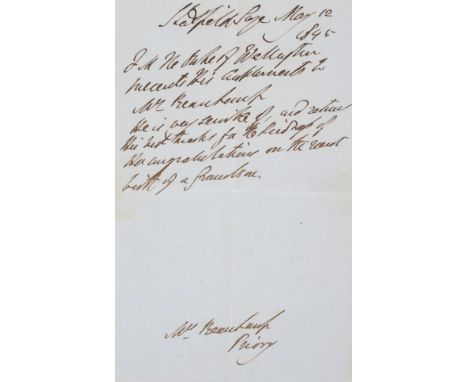 Stratfield Saye May 12
1845
F. M. The Duke of Wellington
presents His Compliments to
Mrs Beauchamp
He is very sensible of and returns
His best thanks for the kindness of
Her congratulations on the recent
birth of a Grandson.
Mrs Beauchamp
Priory